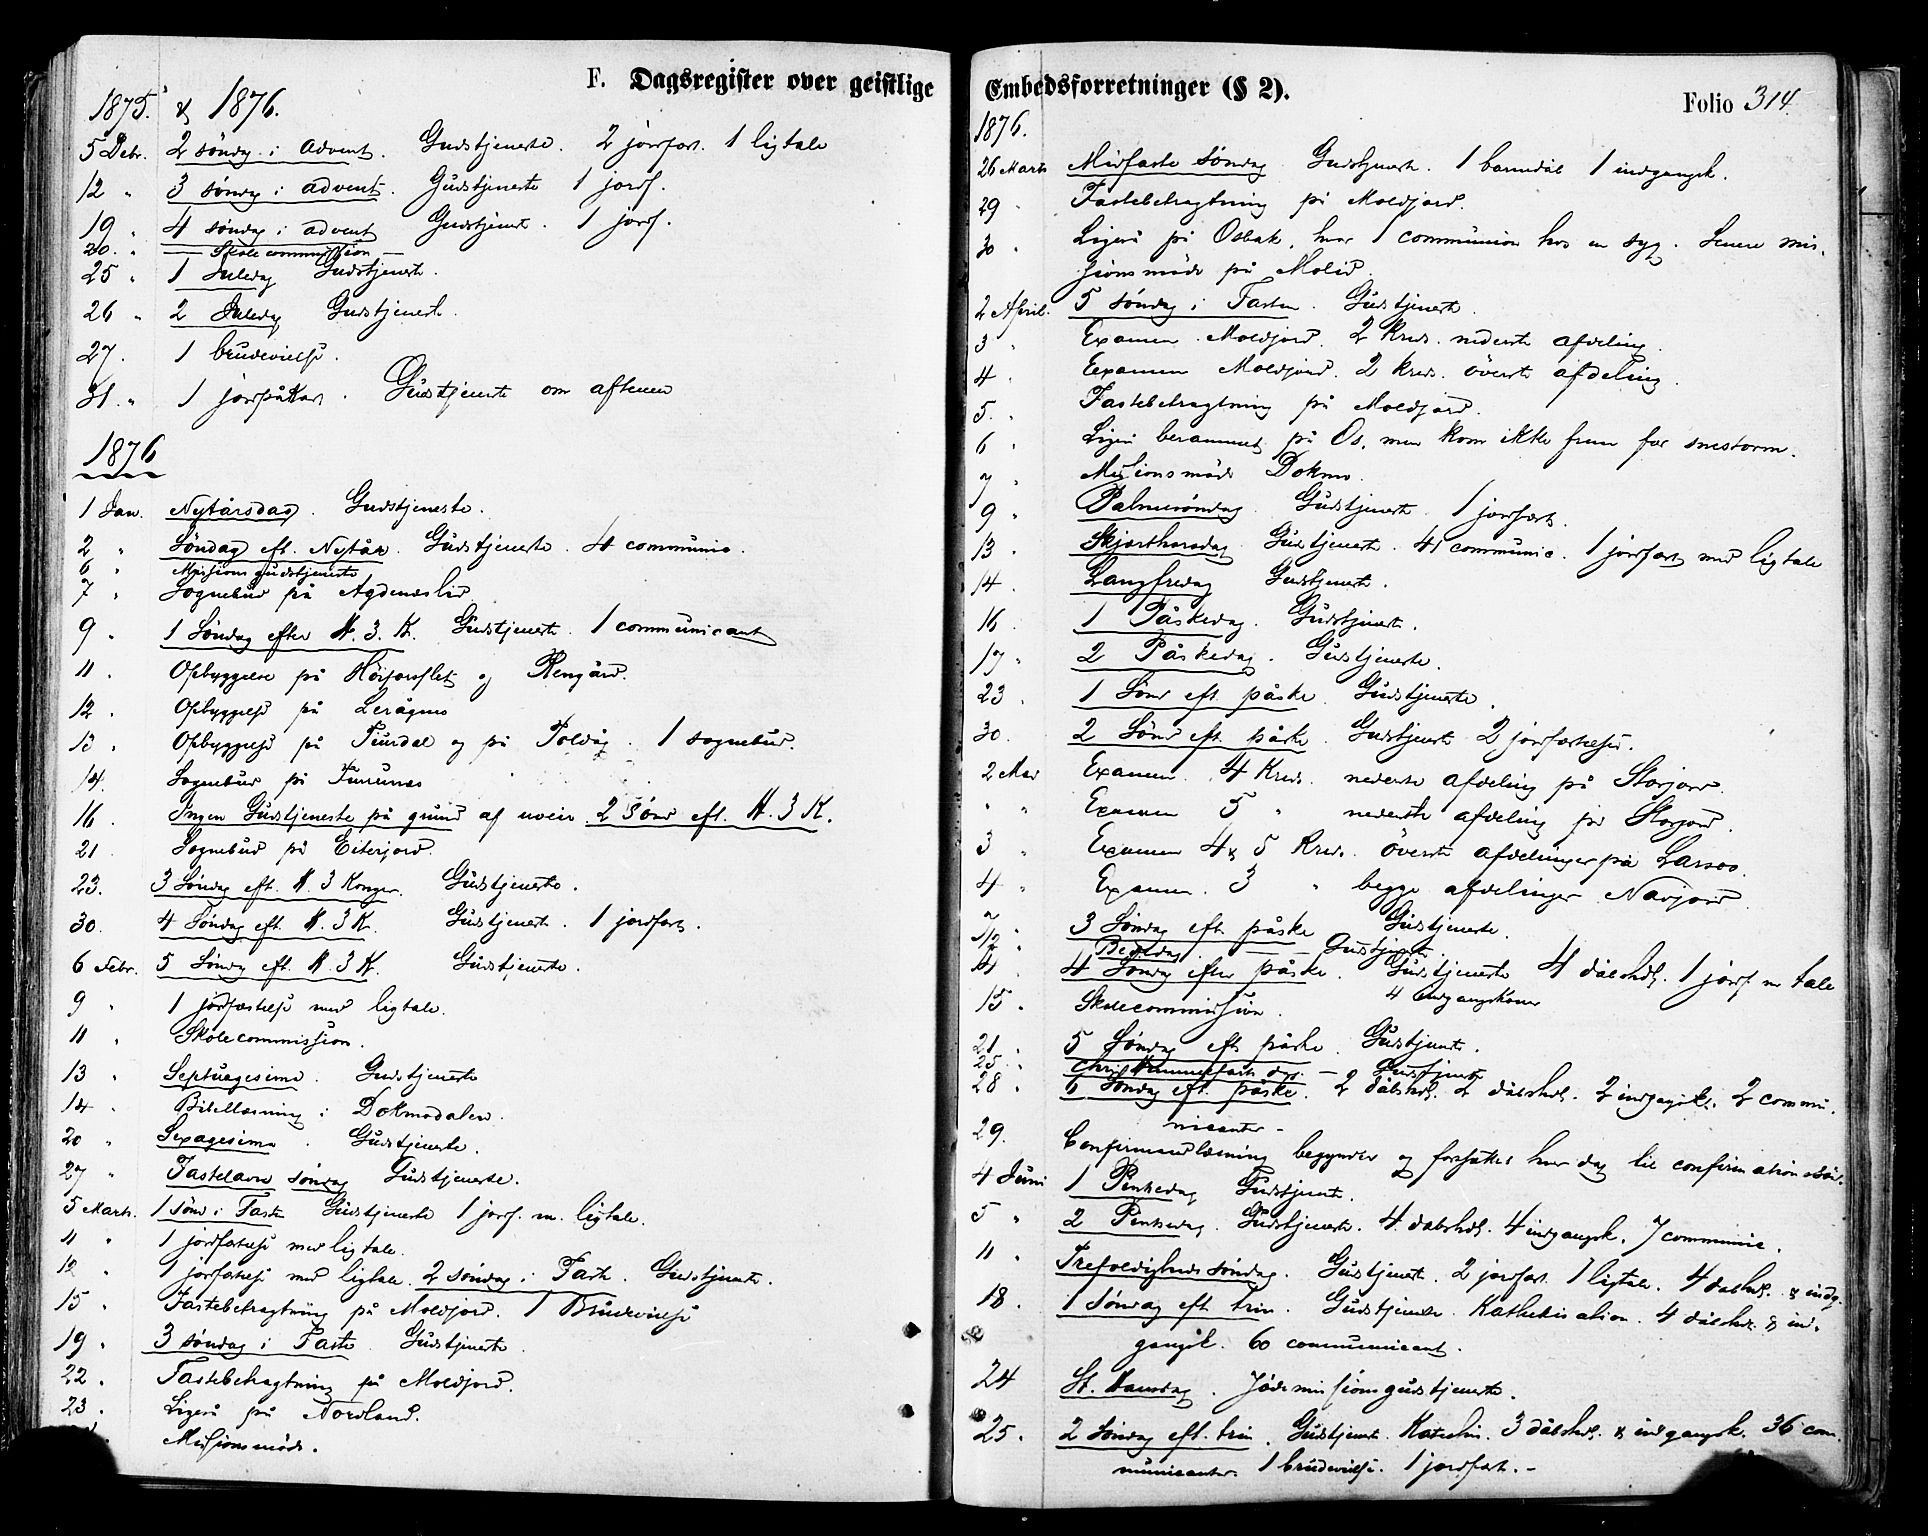 F. Dagsregister over geistlige
1875. & 1876.
5 Debr. 2 söndg. i advent. Gudstjeneste. 2 jordfort. 1 ligtale
12 " 3 söndg i advent. Gudstjeneste 1 jordf.
19 " 4 söndag i advent Gudstjenest. 1 jordf.
20. " — Skolecommission —
25 " 1 Juledag Gudstjeneste.
26 " 2 Juledag Gudstjeneste.
27. 1 brudevielse.
31. " 1 jordpåkast. Gudstjeneste om aftenen
1876
1 Jan. Nytårsdag. Gudstjeneste.
2 " Söndag eft. Nytår. Gudstjeneste. 4 communic.
6 " Missions gudstjeneste
7 " Sognebud på Agdeneslid
9 " 1 Söndag efter H. 3. K. Gudstjeneste. 1 communicant
11. Opbyggelse på Höijarsflet og Rengård.
12. Opbyggelse på Lerågmo
13 " Opbyggelse på Tuurdal og på Toldåg. 1 sognebud.
14. Sognebud på Furunes
16. Ingen Gudstjeneste på grund af uveir 2 Sönd eft. H. 3 K.
21. Sognebud på Eiterjord.
23. 3 Söndag eft. H. 3 Konger. Gudstjeneste.
30. 4 Söndag eft. H. 3 K. Gudstjeneste. 1 jordfært.
6 Febr. 5 Söndg eft. H. 3 K. Gudstjeneste.
9 " 1 jordfæstelse med ligtale.
11 " Skolecommission.
13 " Septuagesima. Gudstjeneste
14. Bibellæsning i Dokmodalen.
20 " Sexagesima. Gudstjeneste.
27 " Fastelavns söndag Gudstjeneste.
5 Marts. 1 sönd i Faste Gudstjeneste 1 jordf. m. ligtale.
11 " 1 jordfæstelse med ligtale.
12 " 1 jordfæstelse med ligtale. 2 söndag i Faste. Gudstjeneste.
15 " Fastebetragtning på Moldjord. 1 Brudevielse
19 " 3 söndag i Faste. Gudstjeneste.
22. " Fastebetragtning på Moldjord.
23. Ligeså på Nordland.
Missionsmöde.
Embedsforretninger (§ 2).
Folio 314.
1876.
26 Marts Midfaste Söndag Gudstjeneste. 1 barnedåb 1 indgangsk.
29 " Fastebetragtning på Moldjord.
30 " Ligeså på Osbak, hvor 1 communion hos en syg. Senere mis-
sionsmöde på Molid.
2 April. 5 söndag i Fasten. Gudstjeneste.
3 " Examen Moldjord. 2 Kreds. nederste afdeling.
4. Examen Moldjord. 2 kreds. överste afdeling.
5. " Fastebetragtning på Moldjord.
6 " Ligeså berammet på Os, men kom ikke frem for snestorm.
7 " Missionsmöde Dokmo.
9 " Palmesöndag. Gudstjeneste 1 jordfært.
13 " Skjærthorsdag Gudstjeneste. 41 communic. 1 jordfært med ligtale
14. Langfredag Gudstjeneste.
16. 1 Påskedag. Gudstjeneste.
17 " 2 Påskedag. Gudstjeneste.
23. 1 Sönd eft. påske. Gudstjeneste.
30. 2 Sönd eft. påske. Gudstjeneste 2 jordfæstelser.
2 Mai Examen. 4 Kreds. nederste afdeling på Storjord.
" " Examen 5 " nederste afdeling på Storjord.
3 " Examen 4 & 5 Kreds. överste afdelinger på Larsos.
4 " Examen. 3 " begge afdelinger Navjord
7 " 3 Söndag eft. påske Gudstjeneste.
12 " Bededag. — — Gudstjeneste.
14 " 4 Söndag efter påske. Gudstjeneste 4 dåbshdl. 1 jordf. m tale
4 Indgangskoner
15 " Skolecommission.
21 " 5 Söndag eft. påske. Gudstjeneste.
25. Chri. Himmelfarts dag. — Gudstjeneste
28 " 6 Söndag eft. påske. 2 dåbshdl. 2 dåbshdl. 2 indgangsk. 2 commu-
nicanter —
29. Confirmandlæsning begynder og fortsættes hver dag til confirmationsdag.
4 Juni 1 Pintsedag Gudstjeneste.
5 " 2 Pintsedag. Gudstjeneste. 4 dåbshdl. 4 indgangsk. 7 communic.
11 " Trefoldigheds söndag. Gudstjeneste. 2 jordfært. 1 ligtale. 4 dåbshdl. & indg.
18. 1 söndag eft. trin. Gudstjeneste. Kathekisation. 4 dåbshdl. & ind-
gangsk. 60 communicant.
24 St. Hansdag. Jödemissionsgudstjeneste.
25. 2 söndag eft. trin. Gudstjeneste. Katekis. 3 dåbshdl. & indgangsk. 36 com-
municanter. 1 brudevielse. 1 jordfært. —